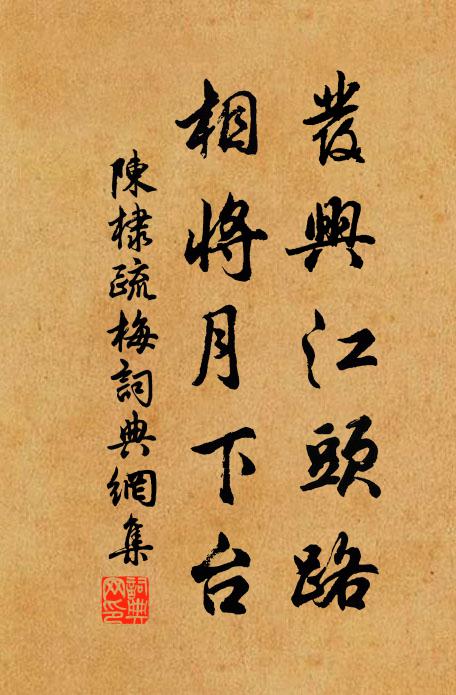 發興江頭路
相將月下台
陳棣疏梅詞典網集
詞典网印